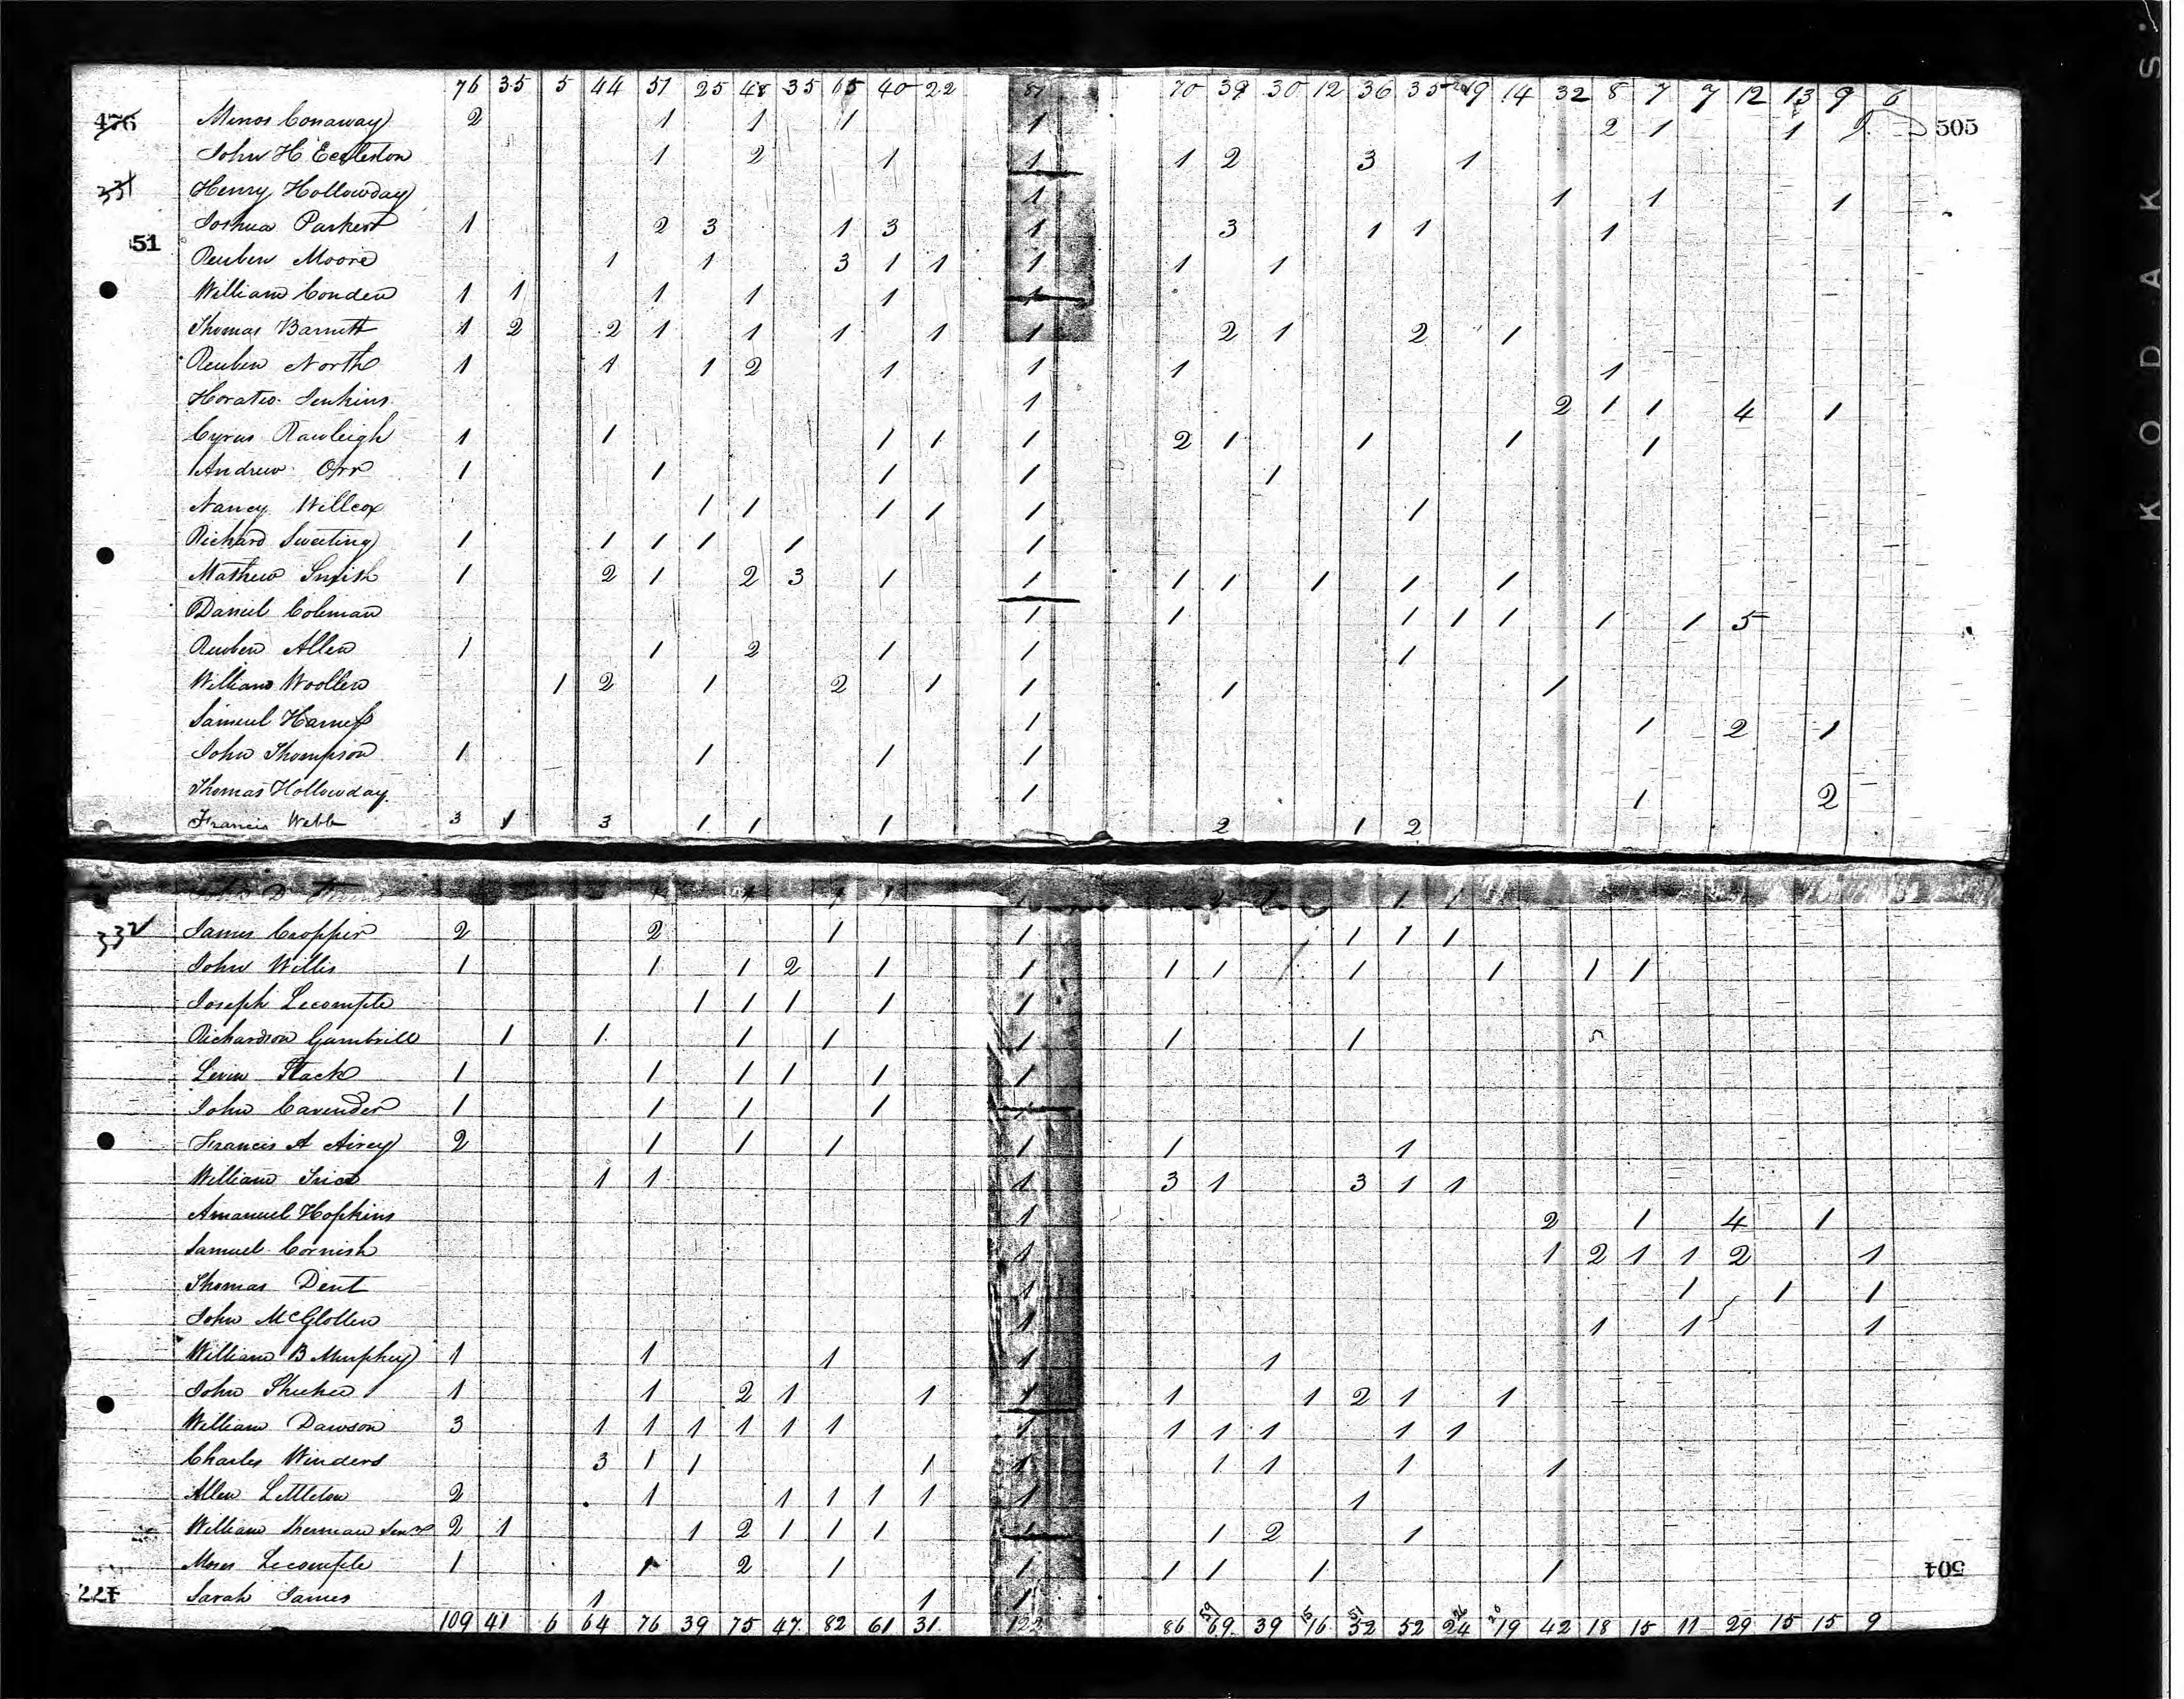 76 35 5 44 51 25 48 35 65 40 22 81 70 39 30 12 36 35 19 14 32 8 7 7 12 13 9 6
476 Minos Conaway 2 1 1 1 1 2 1 1 505
John H Eccleston 1 2 1 1 1 2 3 1
331 Henry Hollowday 1 1 1 1
Joshua Parker 1 2 3 1 3 1 3 1 1 1
51
Reuben Moore 1 1 3 1 1 1 1 1
William Conden 1 1 1 1 1 1
Thomas Barnett 1 2 2 1 1 1 1 1 2 1 2 1
Reuben North 1 1 1 2 1 1 1 1
Horatio Jenkins 1 2 1 1 4 1
Cyrus Rawleigh 1 1 1 1 1 2 1 1 1 1
Andrew Orr 1 1 1 1 1
Nancy Willcox 1 1 1 1 1 1
Richard Sweeting 1 1 1 1 1 1
Mathew Smith 1 2 1 2 3 1 1 1 1 1 1 1
Daniel Coleman 1 1 1 1 1 1 1 5
Reuben Allen 1 1 2 1 1 1
William Woollen 1 2 1 2 1 1 1 1
Samuel Harness 1 1 2 1
John Thompson 1 1 1 1
Thomas Hollowday 1 1 2
Francis Webb 3 1 3 1 1 1 2 1 2
John D
332 James Cropper 2 2 1 1 1 1 1
John Willis 1 1 1 2 1 1 1 1 1 1 1 1
Joseph Lecompte 1 1 1 1 1
Richardson Gambrill 1 1 1 1 1 1 1
Levin Stack 1 1 1 1 1 1
John Cavender 1 1 1 1
Francis A Airey 2 1 1 1 1 1 1
William Trice 1 1 1 3 1 3 1 1
Amanuel Hopkins 1 2 1 4 1
Samuel Cornish 1 1 2 1 1 2 1
Thomas Dent 1 1 1 1
John McGlotten 1 1 1 1
William B Murphey 1 1 1 1 1
John 1 1 2 1 1 1 1 1 2 1 1
William Dawson 3 1 1 1 1 1 1 1 1 1 1 1 1
Charles Winders 3 1 1 1 1 1 1 1 1
Allen Littleton 2 1 1 1 1 1 1 1
William Sherman Senr 2 1 1 2 1 1 1 1 1 2 1
Moses Lecompte 1 1 2 1 1 1 1 1 1
504
477 Sarah James 1 1 1
109 41 6 64 76 39 75 47 82 61 31 122 86 69 39 16 52 52 24 19 42 18 15 11 29 15 15 9
KODAK S